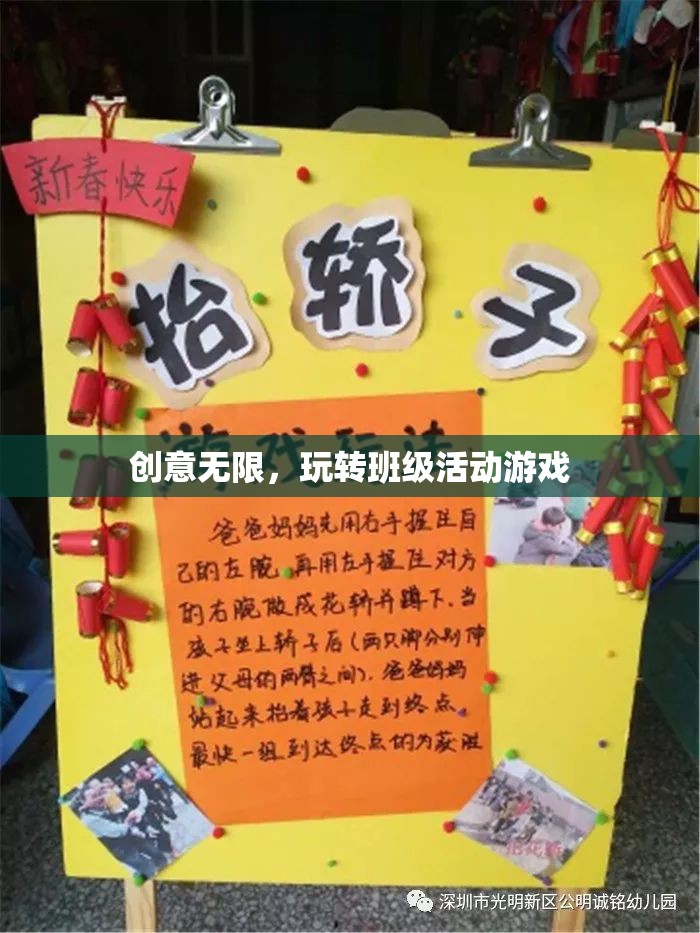 新春快乐
抬轿子
游戏玩法
创意无限，玩转班级活动游戏
爸爸妈妈先用右手握住自
己的左腕，再用左手握住对方
的右腕做成花轿并蹲下，当
孩子坐上轿子后（两只脚分别伸
进父母的两臂之间），爸爸妈妈
站起来抬着孩子走到终点，
最快一组到达终点的为获胜
抬花轿
深圳市光明新区公明诚铭幼儿园